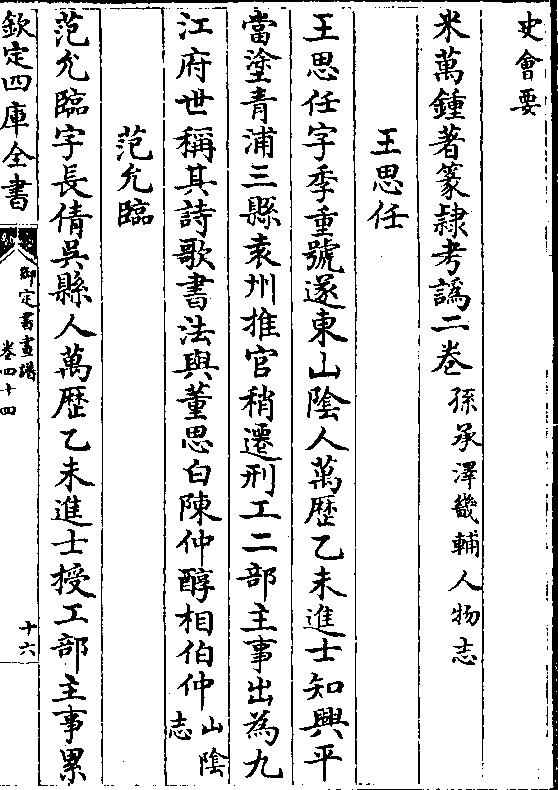 史會要
米萬鍾著篆隷考譌二卷孫承澤畿輔人物志
王思任
王思任字季重號遂東山陰人萬歴乙未進士知興平
當塗青浦三縣袁州推官稍遷刑工二部主事出為九
江府世稱其詩歌書法與董思白陳仲醇相伯仲山陰志
范允臨
范允臨字長倩吳縣人萬歴乙未進士授工部主事累
欽定四庫全書
御定書畫譜
卷四十四
十六